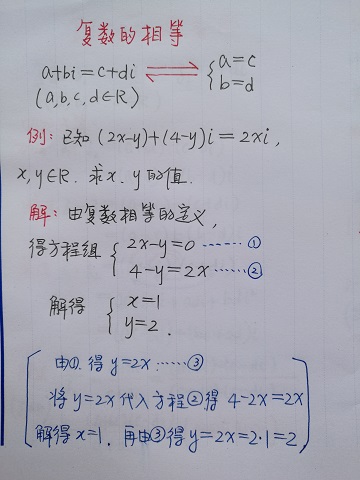 复数的相等
a+bi=c+di ⇌ {a=c
b=d
(a,b,c,d∈R)
例:已知(2x-y)+(4-y)i=2xi,
x,y∈R.求x、y的值.
解:由复数相等的定义,
得方程组{2x-y=0……①
4-y=2x……②
解得{x=1
y=2.
(由①.得y=2x……③
将y=2x代入方程②得4-2x=2x
解得x=1.再由③得y=2x=2·1=2.)